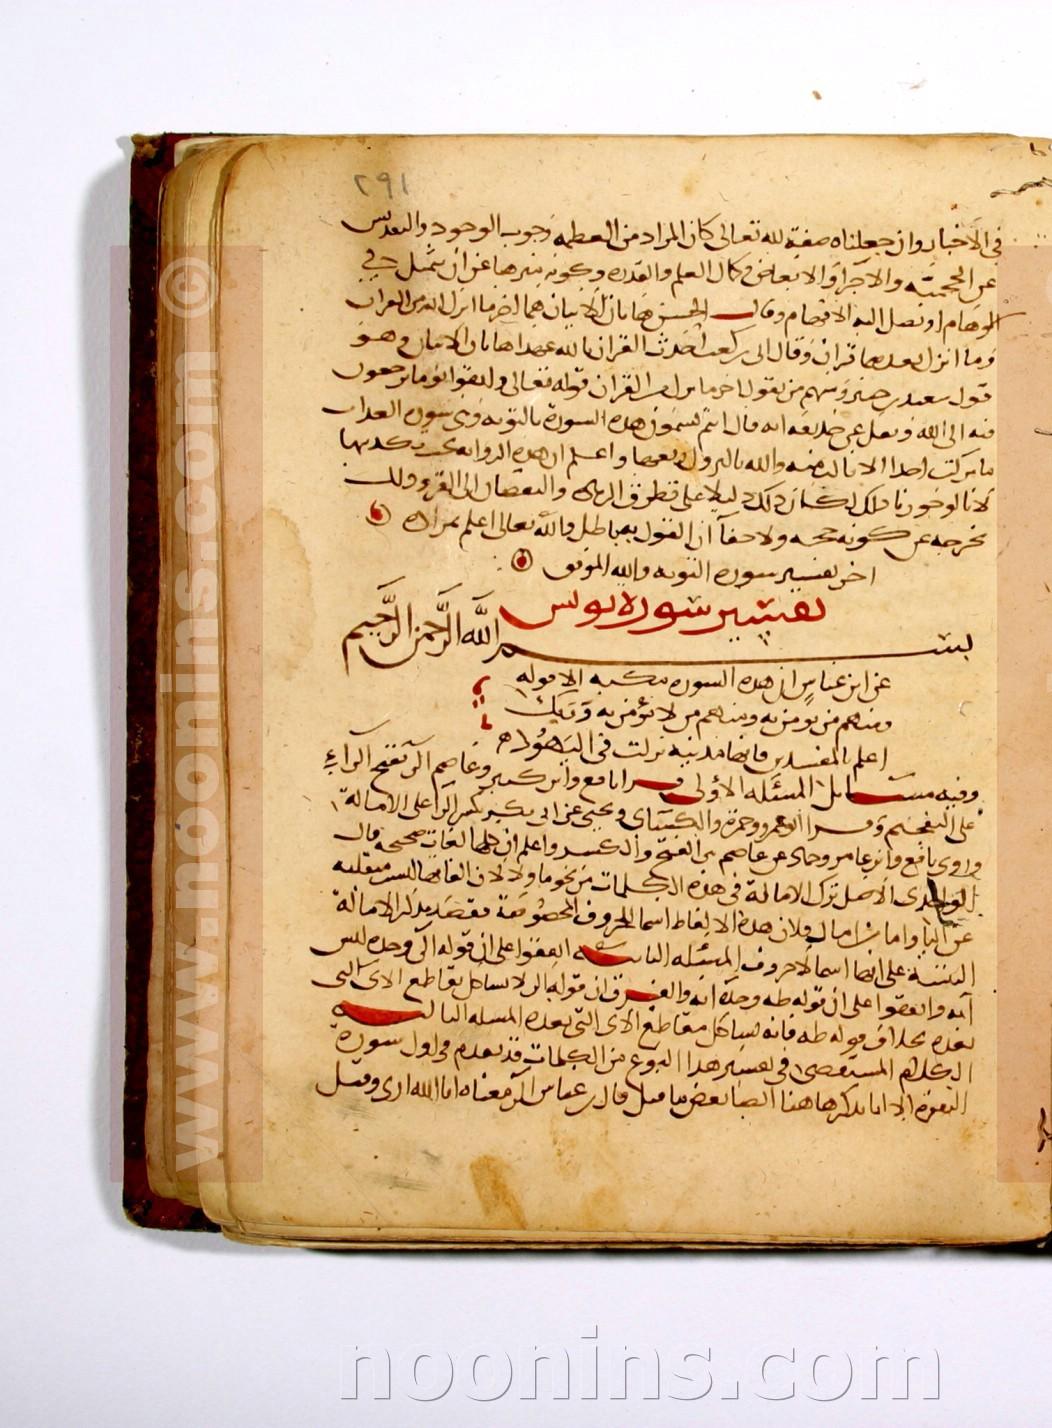 ٢٩١
في الاخبار وان جعلناه صفة لله تعالى كان المراد من العظمه وجوب الوجود والتقديس
عن الحجميته والاجزاء والابعاض وكمال العلم والقدره وكونه منزها عن ان يتمثل في
الاوهام او تصل اليه الافهام وقال الحسن هاتان الايتان هما اخر ما انزل الله من القران
وما انزل بعدهما قران وقال ابي بن كعب احدث القران بالله عهدا هاتان الايتان وهو
قول سعيد بن جبير ومنهم من يقول اخر ما نزل من القران قوله تعالى واتقوا يوما ترجعون
فيه الى الله ونقل عن حذيفه انه قال انتم تسمون هذه السورة بالتوبه وهي سورة العذاب
ما تركت احدا الا نالت منه والله
واعلم ان هذه الروايه يجب تكذيبها
لانا لو جوزنا ذلك لكان ذلك دليلا على تطرق الزياده والنقصان الى القران وذلك
يخرجه عن كونه حجه ولا خفآ ان القول به باطل والله تعالى اعلم بمراده
اخر تفسير سوره التوبه والله الموفق
تفسير سورة يونس
بسم الله الرحمن الرحيم
عن ابن عباس ان هذه السوره مكيه الا قوله
ومنهم من يؤمن به ومنهم من لا يؤمن به وربك
اعلم بالمفسدين فانها مدنيه نزلت في اليهود
وفيه مسائل المسئله الاولى قرا نافع وابن كثير وعاصم الر بفتح الراء
على التفخيم وقرا ابو عمرو وحمزة والكسائي ويحيى عن ابي بكر بكسر الرا على الامالة
وروى نافع وابن عامر وحماد عن عاصم بين الفتح والكسر واعلم ان كلها لغات صحيحه قال
الواحدي الاصل ترك الامالة في هذه الكلمات نحو ما ولا لان الفاتها ليست منقلبه
عن اليا واما من امال فلان هذه الالفاظ اسما للحروف المخصوصة فقصد بذكر الامالة
التنبيه على انها اسما لا حروف المسئله الثانيه اتفقوا على ان قوله الر وحده ليس
آيه واتفقوا على ان قوله طه وحده آيه والفرق ان قوله الر لا يشاكل مقاطع الاي التي
بعده بخلاف قوله طه فانه يشاكل مقاطع الاي التي بعده المسله الثالثه
الكلام المستقصى في تفسير هذا النوع من الكلمات قد تقدم في اول سورة
البقرة الا انا نذكر هاهنا ايضا بعض ما قيل قال ابن عباس الر معناه انا الله ارى وقيل
www.noonins.com ©
noonins.com